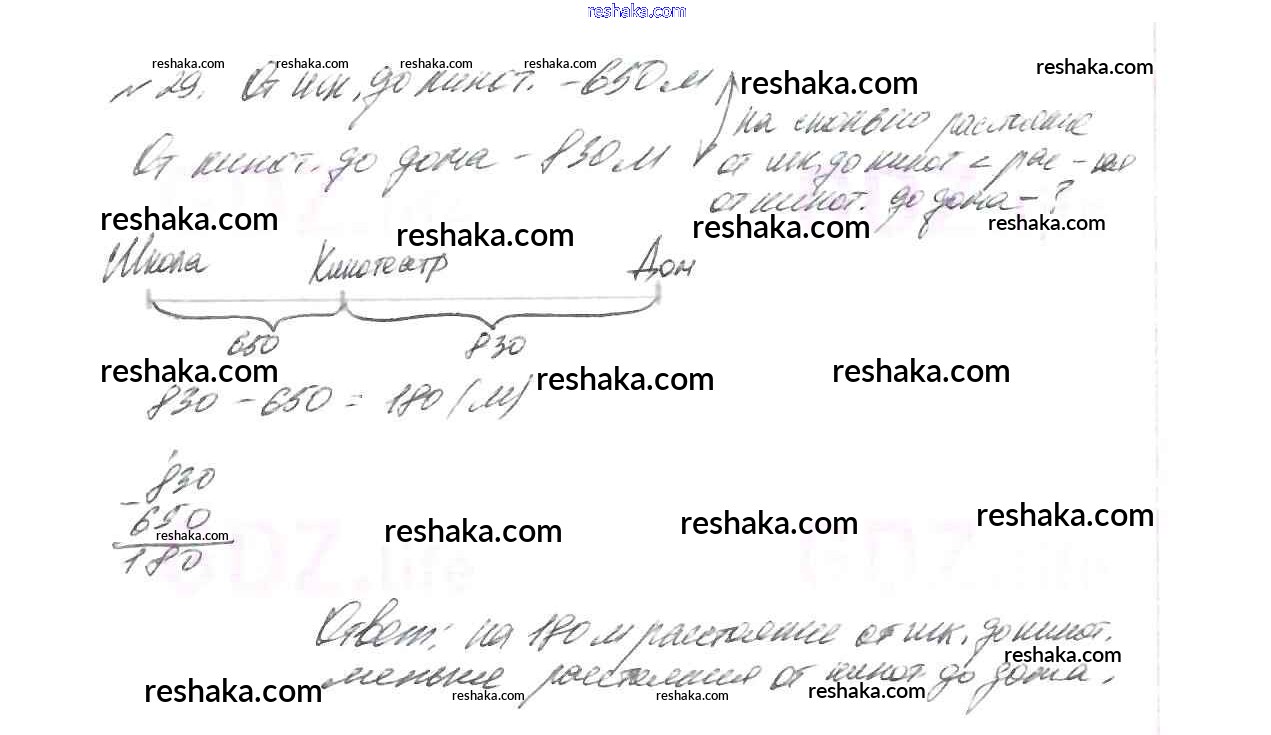 reshaka.com
reshaka.com reshaka.com reshaka.com reshaka.com reshaka.com
№ 29. От шк. до кинот. - 650 м reshaka.com
на сколько расстояние
От кинот. до дома - 830 м от шк. до кинот < рас-ия
от кинот. до дома - ?
reshaka.com reshaka.com reshaka.com reshaka.com
Школа Кинотеатр Дом
650 830
reshaka.com reshaka.com reshaka.com
830 - 650 = 180 (м)
- 830
650
reshaka.com reshaka.com reshaka.com reshaka.com
180
GDZ.life GDZ
Ответ: на 180 м расстояние от шк. до кинот.
reshaka.com
меньше расстояния от кинот. до дома.
reshaka.com reshaka.com reshaka.com reshaka.com